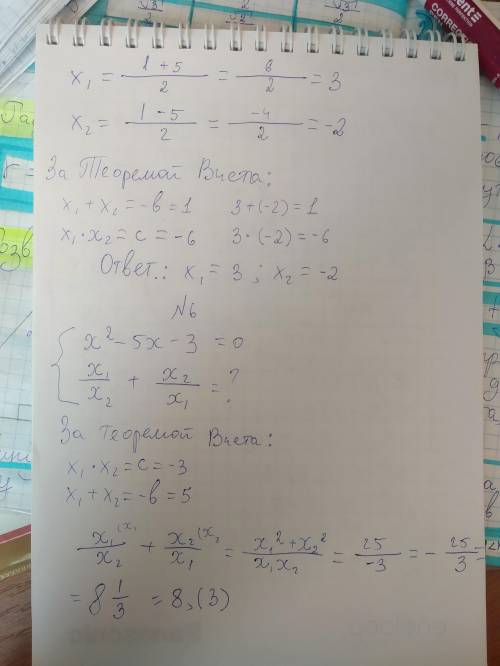 x₁ = (1 + 5)/2 = 6/2 = 3
x₂ = (1 - 5)/2 = -4/2 = -2
За Теоремой Виета:
x₁ + x₂ = -в = 1   3 + (-2) = 1
x₁ · x₂ = c = -6   3 · (-2) = -6
Ответ.: x₁ = 3 ; x₂ = -2
№6
{ x² - 5x - 3 = 0
x₁/x₂ + x₂/x₁ = ?
За теоремой Виета:
x₁ · x₂ = c = -3
x₁ + x₂ = -в = 5
x₁⁽ˣ¹/x₂ + x₂⁽ˣ²/x₁ = (x₁² + x₂²)/(x₁x₂) = 25/-3 = - 25/3 =
= 8 1/3 = 8,(3)